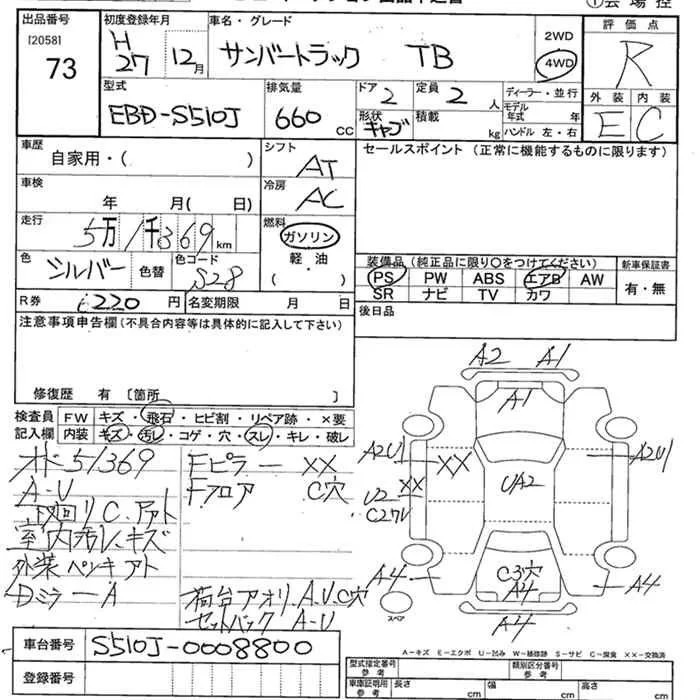 ①会場控
出品番号
[2058]
73
初度登録年月
H
27
12月
車名・グレード
サンバートラック TB
2WD
4WD
評価点
R
型式
EBD-S510J
排気量
660
CC
ドア
2
定員
2
人
形状
積載
kg
ディーラー・並行
モデル
年式
年
ハンドル 左・右
外装
内装
E
C
車歴
自家用・( )
シフト
AT
セールスポイント (正常に機能するものに限ります)
車検
年 月( 日)
冷房
AC
走行
5万1千369
km
燃料
ガソリン
軽・油
色
シルバー
色替
色コード
S28
装備品 (純正品に限り○をつけてください)
PS PW ABS エアB AW
SR ナビ TV カワ
新車保証書
有・無
R券
220
円
名変期限 月 日
後日品
注意事項申告欄(不具合内容等は具体的に記入して下さい)
修復歴 有 [箇所 ]
検査員
記入欄
FW キズ・飛石・ヒビ割・リペア跡・×要
内装 キズ・汚レ・コゲ・穴・スレ・キレ・破レ
51369
A-U
下廻り C.
室内汚レ.キズ
外装ペンキアト
Dミラー A
Fピラー XX
Fフロア C穴
荷台アオリ A.U.C穴
セットバック A-U
A2 A1
A1
A2U1
XX
A2U1
XX
U2
UA2
A4
C3穴
A4
A4
A4
スペア
車台番号
S510J-0008800
登録番号
A-キズ E-エクボ U-凹み W-補修跡 S-サビ C-腐食 XX-交換済
型式指定番号
参考
類別区分番号
参考
車庫証明用
参考
長さ cm 幅 cm 高さ cm